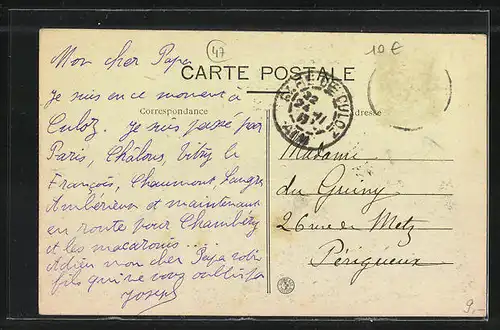 Mon cher Papa
47
10 €
CARTE POSTALE
Je suis en ce moment à
Correspondance
Adresse
Culoz. Je suis passé par
Paris, Châlons, Vitry le
François, Chaumont, Langres
Ambérieux et maintenant
en route pour Chambéry
et les macaronis....
Adieu mon cher Papa votre
fils qui ne vous oublie pas
Joseph
GARE DE CULOZ
AIN
Madame
du Guiny
26 rue de Metz
Périgueux
9.-